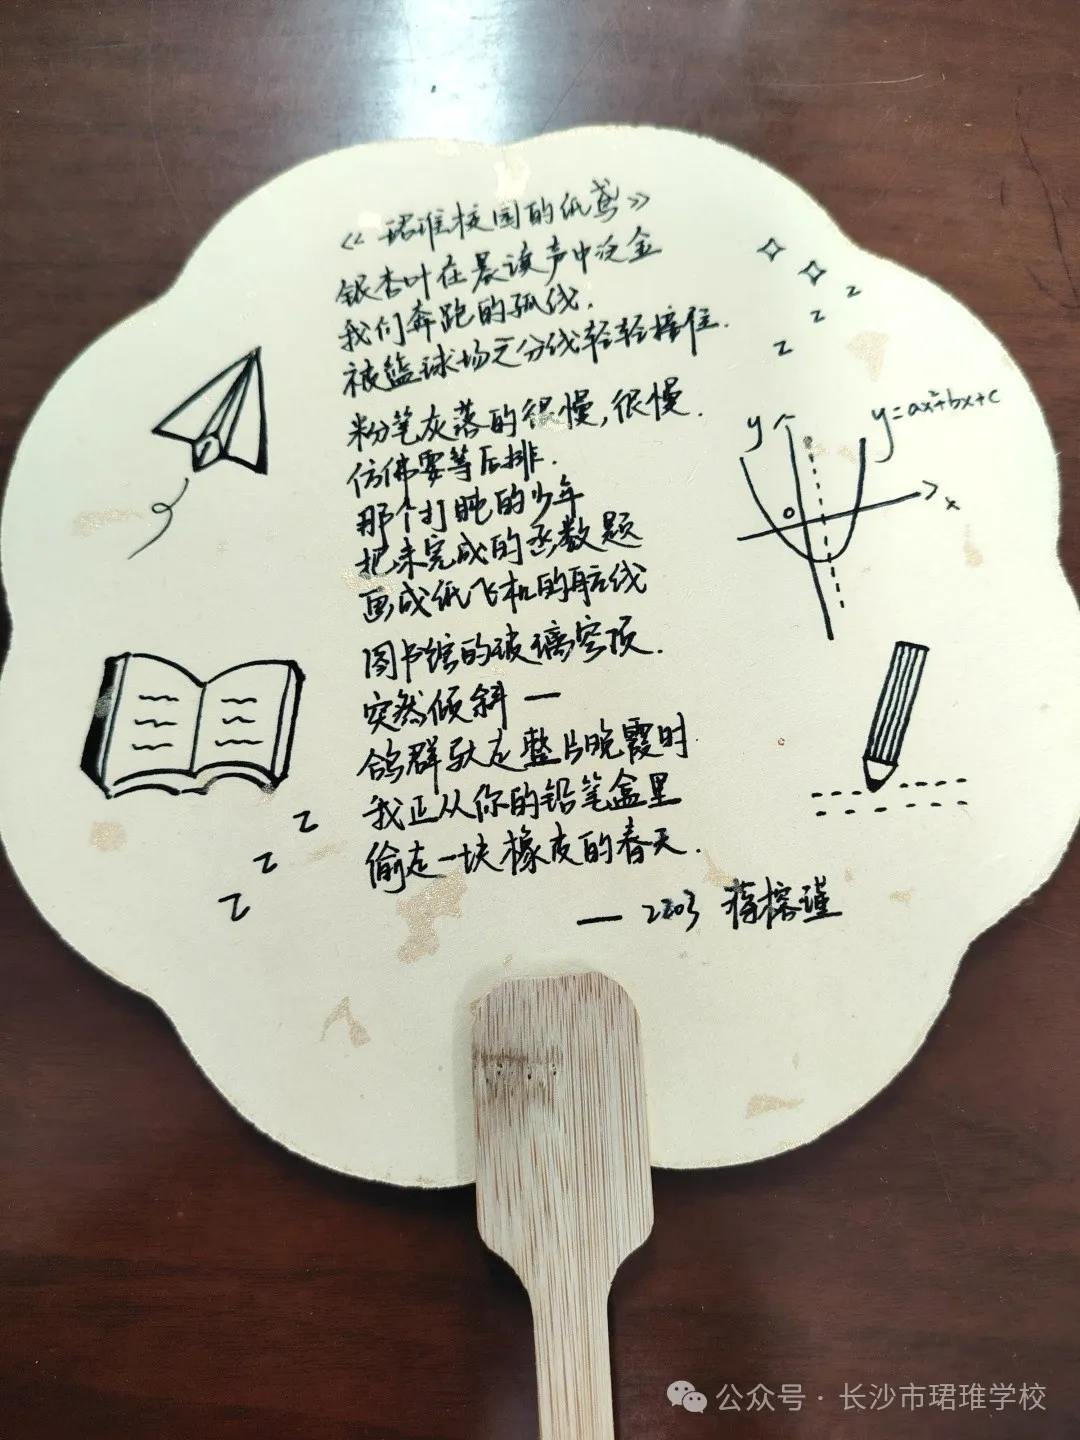 《珺琟校园的纸鸢》
银杏叶在晨读声中泛金
我们奔跑的弧线.
被篮球场三分线轻轻接住.
粉笔灰落的很慢,很慢.
仿佛要等后排.
那个打盹的少年
把未完成的函数题
画成纸飞机的航线
图书馆的玻璃穹顶.
突然倾斜—
鸽群驮走整片晚霞时
我正从你的铅笔盒里
偷走一块橡皮的春天.
— 2203 蒋榕瑾
y
y=ax²+bx+c
o
x
z
z
z
z
z
z
公众号 · 长沙市珺琟学校